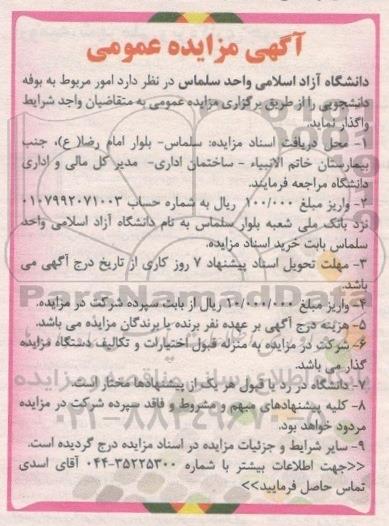 آگهی مزایده عمومی
دانشگاه آزاد اسلامی واحد سلماس در نظر دارد امور مربوط به بوفه
دانشجویی را از طریق برگزاری مزایده عمومی به متقاضیان واجد شرایط
واگذار نماید.
۱- محل دریافت اسناد مزایده: سلماس- بلوار امام رضا( ع)، جنب
بیمارستان خاتم الانبیاء - ساختمان اداری- مدیر کل مالی و اداری
دانشگاه مراجعه فرمایند.
۲- واریز مبلغ ۱۰۰/۰۰۰ ریال به شماره حساب ۰۱۰۷۹۹۲۰۷۱۰۰۳
نزد بانک ملی شعبه بلوار سلماس به نام دانشگاه آزاد اسلامی واحد
سلماس بابت خرید اسناد مزایده.
۳- مهلت تحویل اسناد پیشنهاد ۷ روز کاری از تاریخ درج آگهی می
باشد.
۴- واریز مبلغ ۱۰/۰۰۰/۰۰۰ ریال از بابت سپرده شرکت در مزایده.
۵- هزینه درج آگهی بر عهده نفر برنده یا برندگان مزایده می باشد.
۶- شرکت در مزایده به منزله قبول اختیارات و تکالیف دستگاه مزایده
گذار می باشد.
۷- دانشگاه در رد یا قبول هر یک از پیشنهادها مختار است.
۸- کلیه پیشنهادهای مبهم و مشروط و فاقد سپرده شرکت در مزایده
مردود خواهد بود.
۹- سایر شرایط و جزئیات مزایده در اسناد مزایده درج گردیده است.
<<جهت اطلاعات بیشتر با شماره ۳۵۲۲۵۳۰۰-۰۴۴ آقای اسدی
تماس حاصل فرمایید>>
ParsNamadData